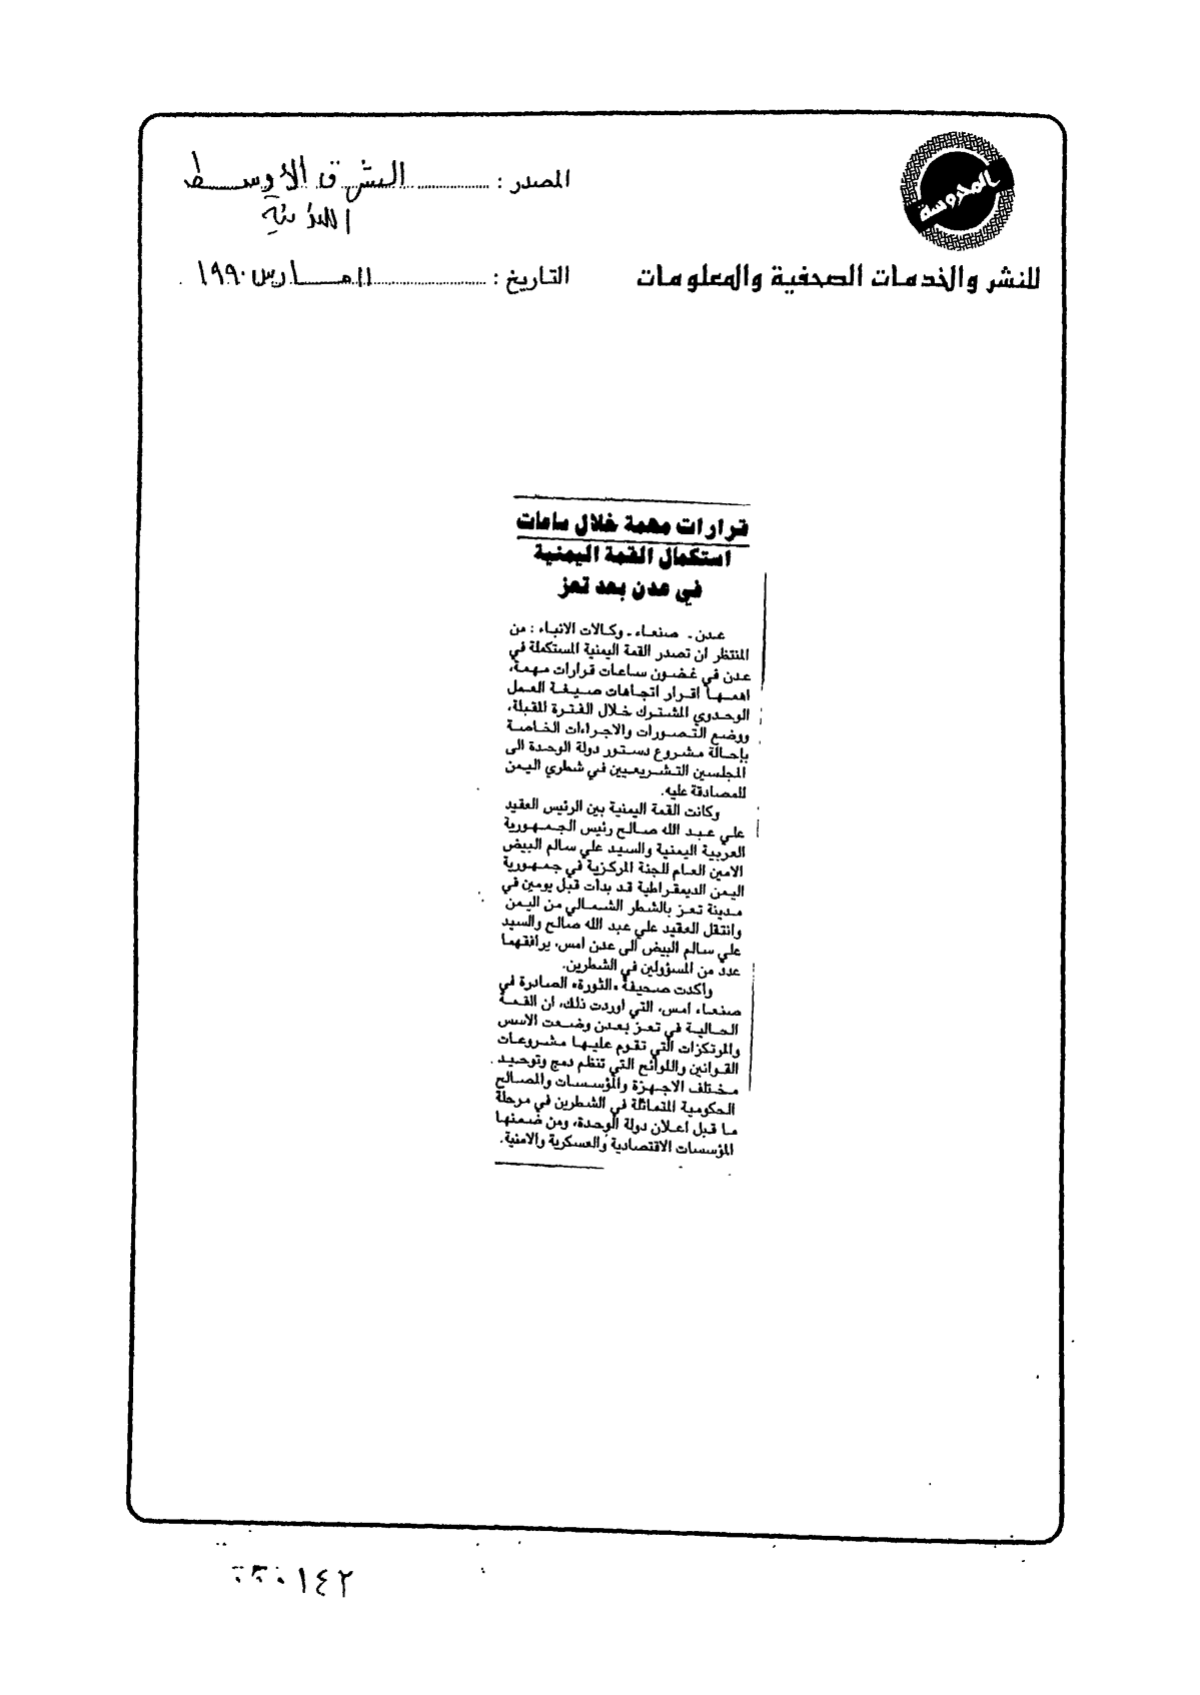 المحروسة
للنشر والخدمات الصحفية والمعلومات
المصدر : الشرق الأوسط
التاريخ : ١١ مارس ١٩٩٠
قرارات مهمة خلال ساعات
استكمال القمة اليمنية
في عدن بعد تعز
عدن ـ صنعاء ـ وكالات الانباء : من
المنتظر ان تصدر القمة اليمنية المستكملة في
عدن في غضون ساعات قرارات مهمة،
اهمها اقرار اتجاهات صيغة العمل
الوحدوي المشترك خلال الفترة المقبلة،
ووضع التصورات والاجراءات الخاصة
بإحالة مشروع دستور دولة الوحدة الى
المجلسين التشريعيين في شطري اليمن
للمصادقة عليه.
وكانت القمة اليمنية بين الرئيس العقيد
علي عبد الله صالح رئيس الجمهورية
العربية اليمنية والسيد علي سالم البيض
الامين العام للجنة المركزية في جمهورية
اليمن الديمقراطية قد بدأت قبل يومين في
مدينة تعز بالشطر الشمالي من اليمن
وانتقل العقيد علي عبد الله صالح والسيد
علي سالم البيض الى عدن امس، يرافقهما
عدد من المسؤولين في الشطرين.
واكدت صحيفة «الثورة» الصادرة في
صنعاء امس، التي اوردت ذلك، ان القمة
الحالية في تعز بعدن وضعت الاسس
والمرتكزات التي تقوم عليها مشروعات
القوانين واللوائح التي تنظم دمج وتوحيد
مختلف الاجهزة والمؤسسات والمصالح
الحكومية المتماثلة في الشطرين في مرحلة
ما قبل اعلان دولة الوحدة، ومن ضمنها
المؤسسات الاقتصادية والعسكرية والامنية.